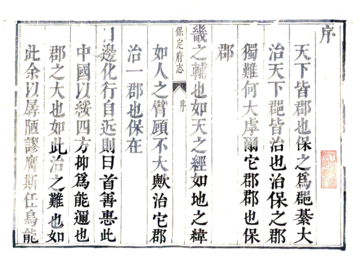 序
天下皆郡也保之爲郡綦大
治天下郡皆治也治保之郡
獨難何大虖爾它郡郡也保
郡
畿之輔也如天之經如地之緯
保定府志 序
如人之臂顧不大歟治它郡
治一郡也保在
邊化行自近則曰首善惠此
中國以綏四方抑爲能邇也
郡之大也如此治之難也如
此余以孱陋謬膺斯任烏能